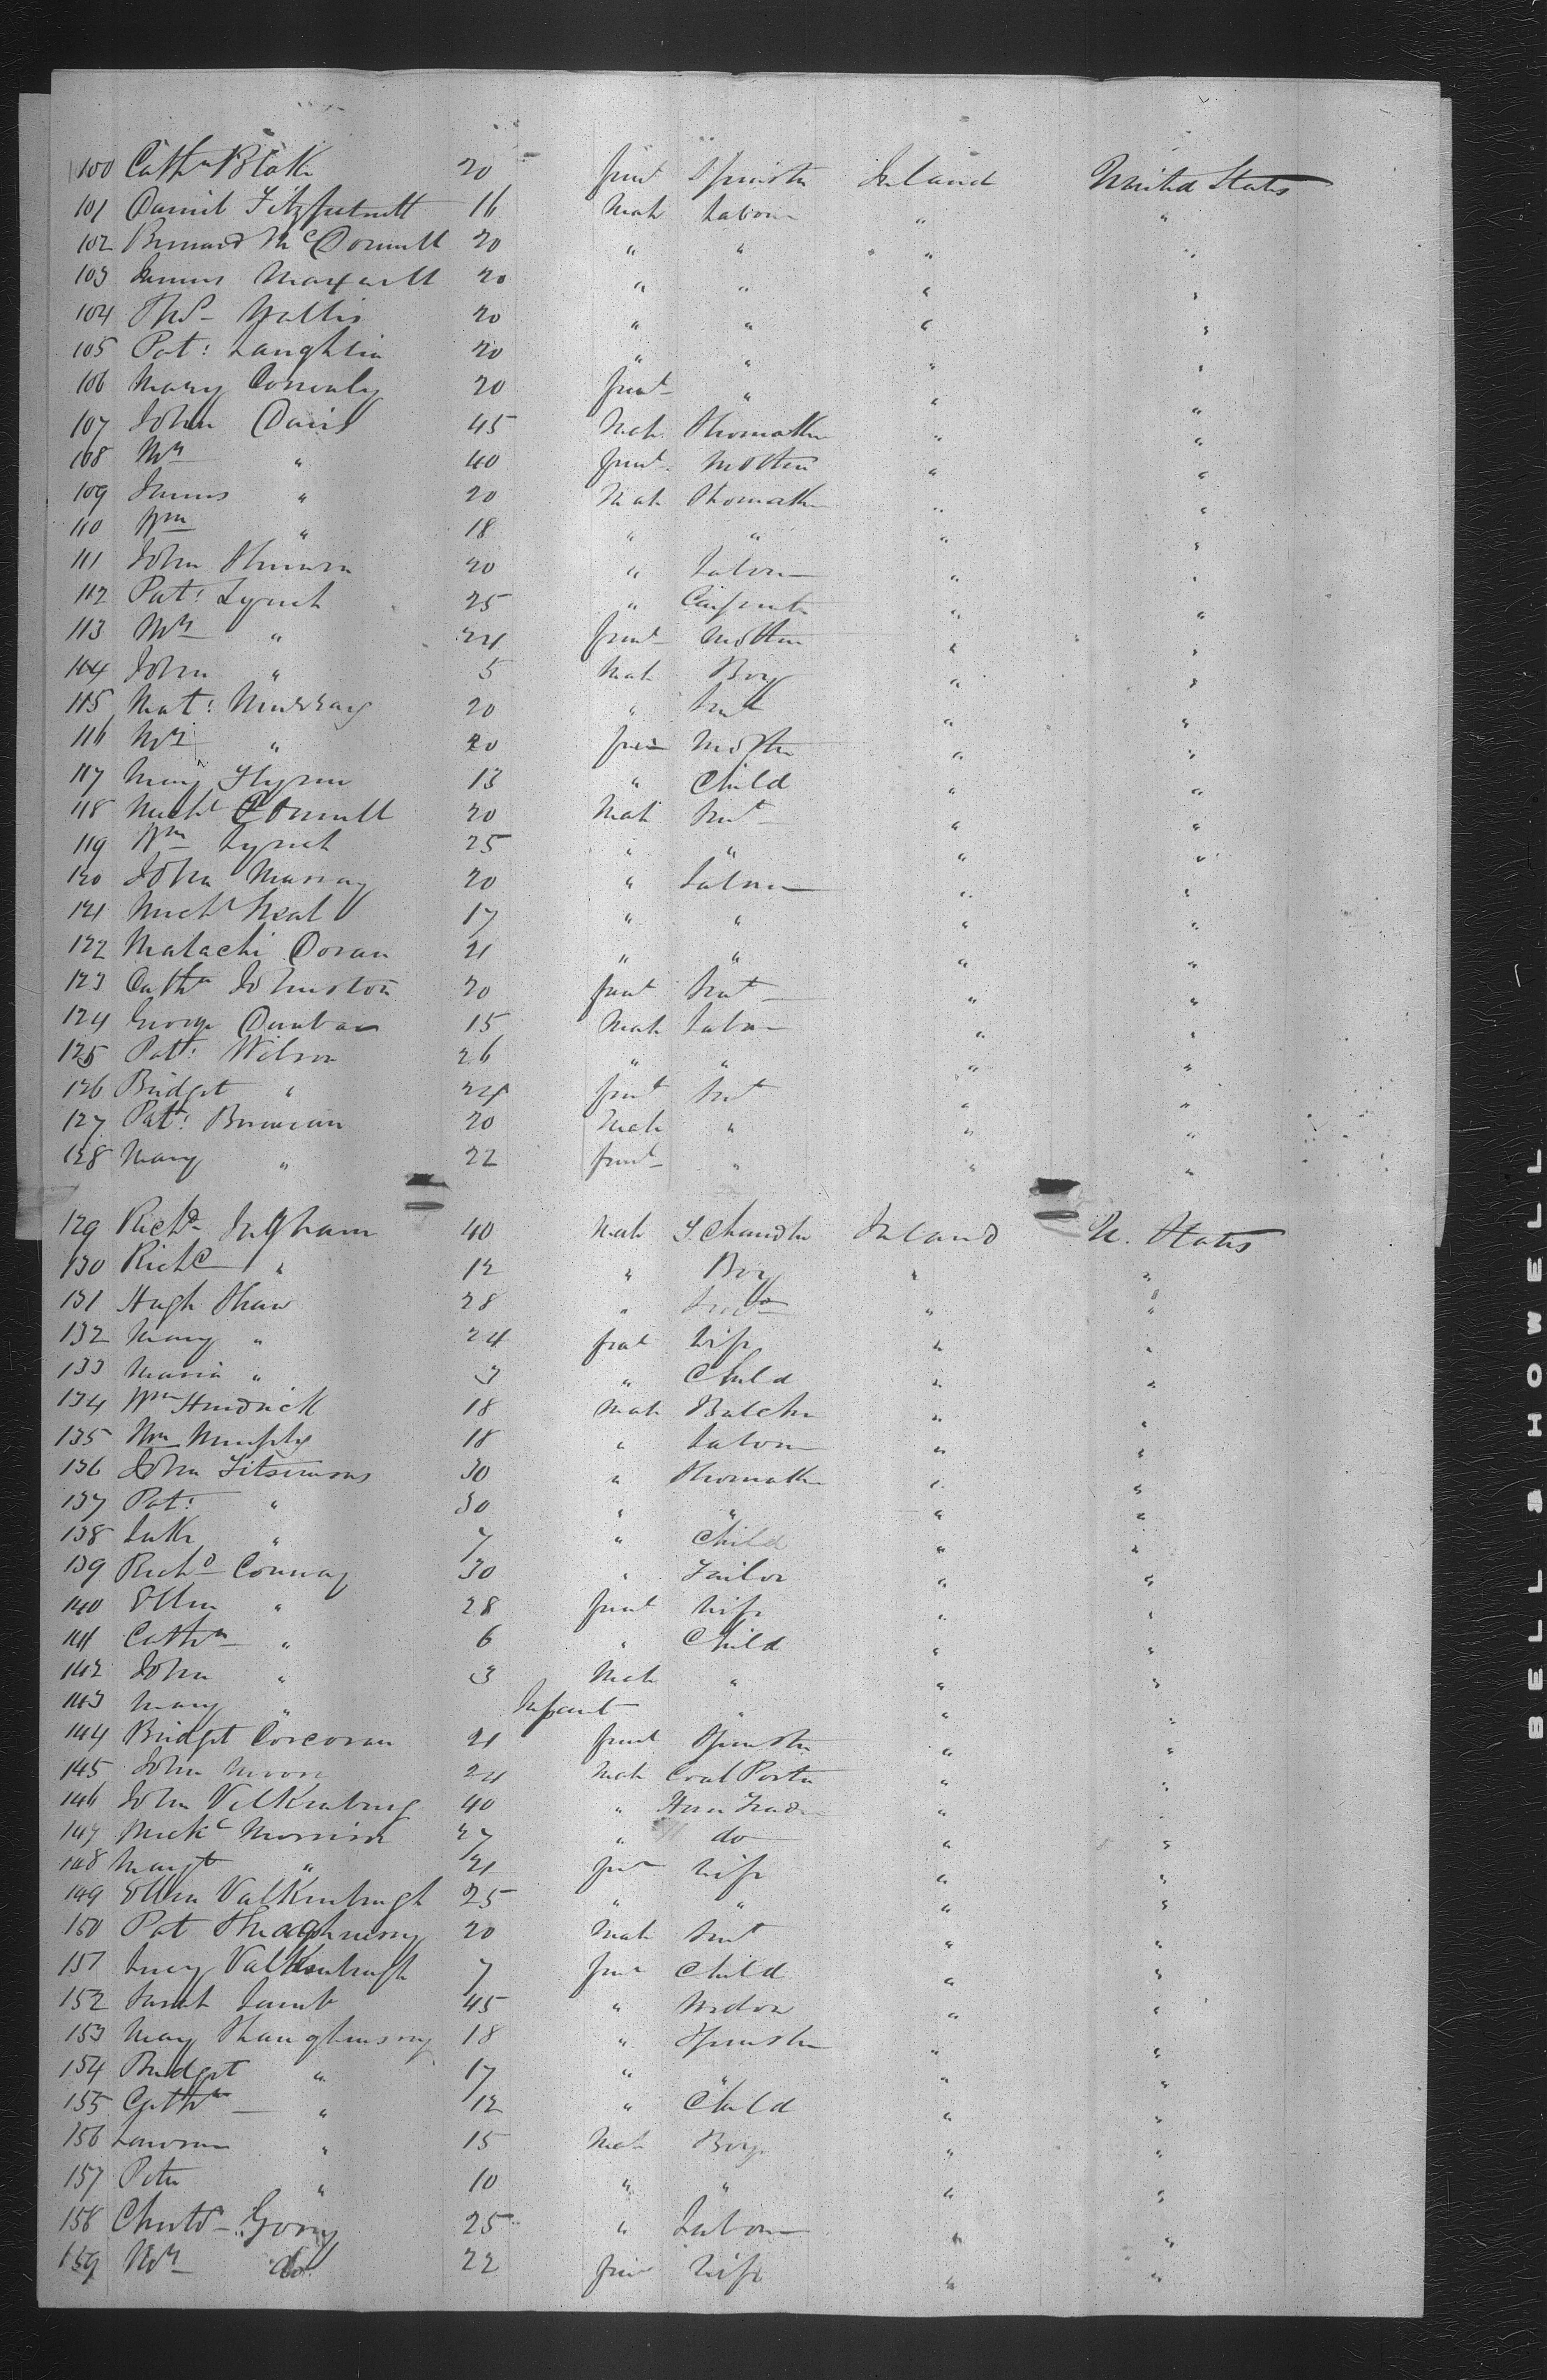 100 Cathn Blake 20 femt Spinster Ireland United States
101 Daniel Fitzpatrick 16 Male Labour " "
102 Bernard McDonnell 20 " " " "
103 James Maxwell 20 " " " "
104 Thos Wallis 20 " " " "
105 Pat: Laughlin 20 " " " "
106 Mary Connoly 20 femt " " "
107 John Davis 45 Male Shoemaker " "
108 Mrs " 40 femt Mother " "
109 James " 20 Male Shoemaker " "
110 Wm " 18 " " " "
111 John 20 " Labour " "
112 Pat: Lynch 25 " Carpenter " "
113 Mrs " 24 femt Mother " "
114 John " 5 Male Boy " "
115 Mat: Murray 20 " Servt " "
116 Mrs " 20 fem Mother " "
117 Mary Flynn 13 " Child " "
118 Michl 20 Male Servt " "
119 Wm Lynch 25 " " " "
120 John Murray 20 " Labour " "
121 Michl Neal 17 " " " "
122 Malachi Doran 21 " " " "
123 Cathn Johnston 20 femt Servt " "
124 George Dunbar 15 Male Labour " "
125 Patt: Wilson 26 " " " "
126 Bridget " 24 femt Servt " "
127 Patt: Brennan 20 Male " " "
128 Mary " 22 femt " " "
129 Richd Ingham 40 Male T. Chandler Ireland U. States
130 Richd " 12 " Boy " "
131 Hugh Shaw 28 " " "
132 Mary " 24 femt Wife " "
133 Maria " 3 " Child " "
134 Wm Hendrick 18 Male Butcher " "
135 Wm Murphy 18 " Labour " "
136 John Fitsimons 30 " Shoemaker " "
137 Pat: " 30 " " " "
138 Luke " 7 " Child " "
139 Richd Conway 30 " Tailor " "
140 Ellen " 28 femt Wife " "
141 Cathn " 6 " Child " "
142 John " 3 Male " " "
143 Mary " Infant " " "
144 Bridget Corcoran 21 femt Spinster " "
145 John Moore 24 Male Coal Porter " "
146 John Valkenburg 40 " " "
147 Michl Morrison 27 " do " "
148 Margt " 21 fem Wife " "
149 Ellen Valkenburgh 25 " " " "
150 Pat Shaughnessy 20 Male Servt " "
151 Lucy Valkenburgh 7 fem Child " "
152 Sarah Lamb 45 " Widow " "
153 Mary Shaughnessy 18 " Spinster " "
154 Bridget " 17 " " " "
155 Cathn " 12 " Child " "
156 Lawrence " 15 Male Boy " "
157 Peter " 10 " " " "
158 Christr Gorry 25 " Labour " "
159 Mrs do 22 fem Wife " "
BELL & HOWELL